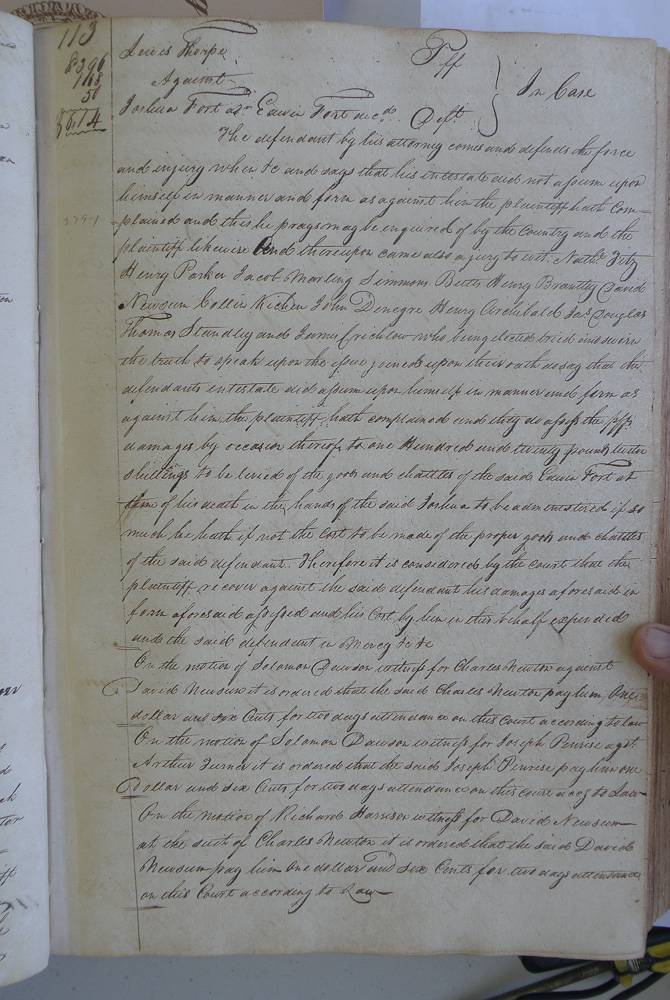 113
8.96
1.68
50
Lewis Thorpe Plff
Against } In Case
Joshua Fort adr Edwin Fort decd. Deft.
The defendant by his attorney comes and defends the force
and injury when &c and says that his intestate did not assume upon
himself in manner and form as against him the plaintiff hath com-
plained and this he prays may be enquired of by the Country and the
plaintiff likewise And thereupon came also a jury to wit. Nathl.
Henry Parker Jacob Marling Simmons Butts Henry Brantley David
Newsum Collin Kitchen John Denegre Henry Archibald Jas. Douglas
Thomas Standley and James Crichlow who being elected tried and sworn
the truth to speak upon the issue joined upon their oath do say that the
defendants intestate did assume upon himself in manner and form as
against him the plaintiff hath complained and they do assess the plffs
damages by occasion thereof to one Hundred and twenty pounds
shillings to be levied of the goods and chattles of the said Edwin Fort at
time of his death in the hands of the said Joshua to be administered if so
much he hath if not the Cost to be made of the proper goods and chattles
of the said defendant. Therefore it is considered by the court that the
plaintiff recover against the said defendant his damages aforesaid in
form aforesaid assessed and his Cost by him in this behalf expended
and the said defendant in Mercy &c &c
On the motion of Solomon Dawson witness for Charles Newton against
David Newsum it is ordered that the said Charles Newton pay him One
dollar and six Cents for two days attendance on this Court according to law
On the motion of Solomon Dawson witness for Joseph Penrise agst.
Arthur Turner it is ordered that the said Joseph Penrise pay him one
Dollar and six Cents for two days attendance on this court accg to Law
On the motion of Richard Harrison witness for David Newsum
at the suit of Charles Newton it is ordered that the said David
Newsum pay him One dollar and six Cents for two days attendance
on this Court according to Law